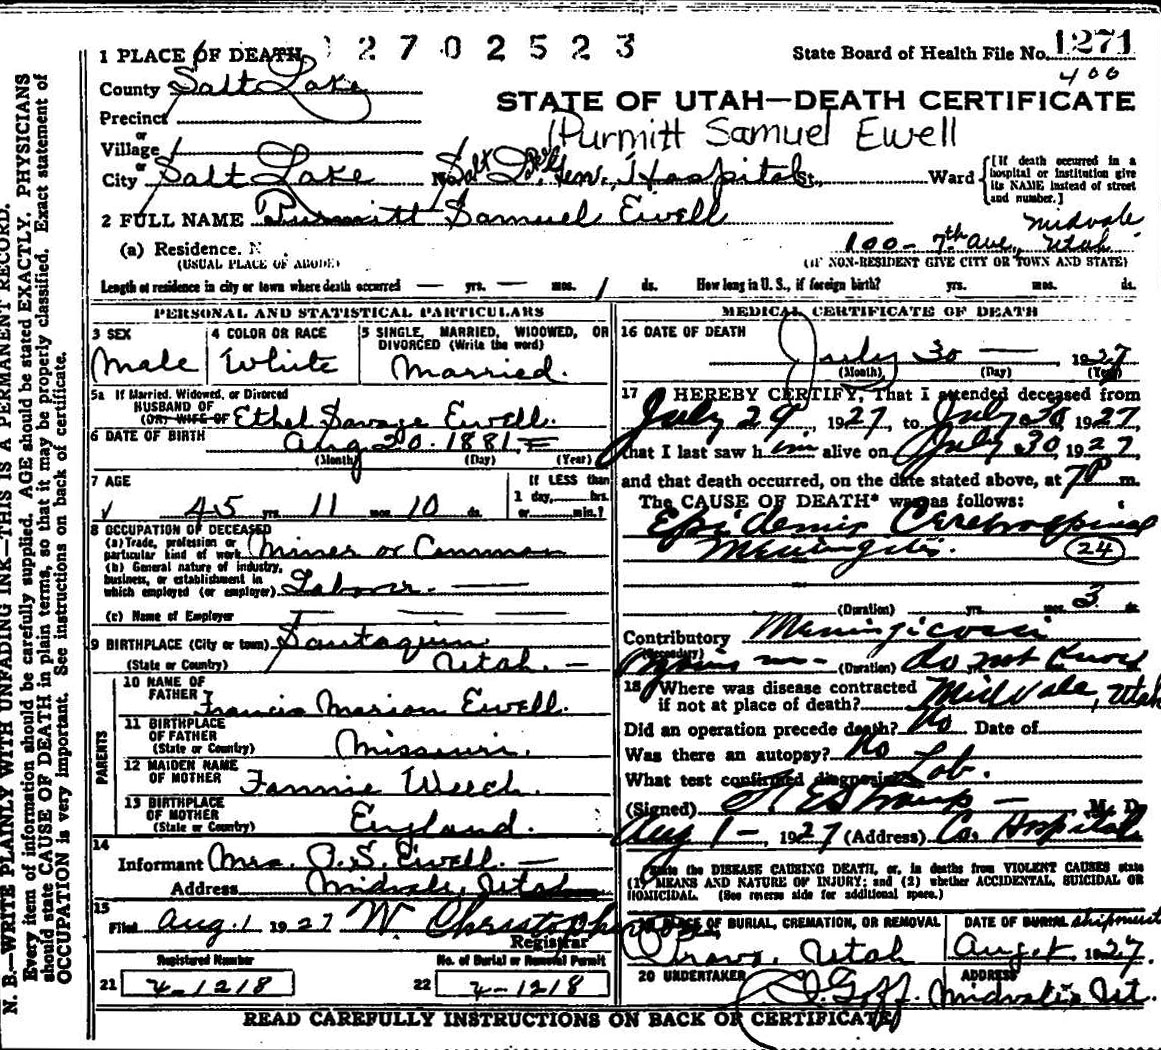 1 PLACE OF DEATH 2702523 State Board of Health File No. 1271
400
County Salt Lake
STATE OF UTAH—DEATH CERTIFICATE
Precinct
Purmitt Samuel Ewell
or
Village
or
City Salt Lake No. Salt Lake Gen. Hospital St., Ward [If death occurred in a hospital or institution give its NAME instead of street and number.]
2 FULL NAME Purmitt Samuel Ewell
(a) Residence. N 100 - 7th Ave., Midvale Utah
(USUAL PLACE OF ABODE) (IF NON-RESIDENT GIVE CITY OR TOWN AND STATE)
Length of residence in city or town where death occurred — yrs. — mos. 1 ds. How long in U. S., if foreign birth? yrs. mos. ds.
PERSONAL AND STATISTICAL PARTICULARS
3 SEX Male
4 COLOR OR RACE White
5 SINGLE, MARRIED, WIDOWED, OR DIVORCED (Write the word) Married.
5a If Married, Widowed, or Divorced
HUSBAND OF
(OR) WIFE OF Ethel Savage Ewell.
6 DATE OF BIRTH Aug 20. 1881
(Month) (Day) (Year)
7 AGE 45 yrs. 11 mos. 10 ds.
If LESS than 1 day, hrs. or min.?
8 OCCUPATION OF DECEASED
(a) Trade, profession or particular kind of work Miner or Common
(b) General nature of industry, business, or establishment in which employed (or employer) Laborer. —
(c) Name of Employer
9 BIRTHPLACE (City or town) Santaquin
(State or Country) Utah. —
PARENTS
10 NAME OF FATHER Francis Marion Ewell.
11 BIRTHPLACE OF FATHER (State or Country) Missouri.
12 MAIDEN NAME OF MOTHER Fannie Weech.
13 BIRTHPLACE OF MOTHER (State or Country) England.
14
Informant Mrs. P. S. Ewell. —
Address Midvale, Utah
15
Filed Aug. 1 1927 W. Christopherson
Registrar
Registered Number No. of Burial or Removal Permit
21 4-1218 22 4-1218
MEDICAL CERTIFICATE OF DEATH
16 DATE OF DEATH
July 30 — 1927
(Month) (Day) (Year)
17 I HEREBY CERTIFY, That I attended deceased from
July 29, 1927, to July 30 1927,
that I last saw him alive on July 30, 1927,
and that death occurred, on the date stated above, at 7P m.
The CAUSE OF DEATH* was as follows:
Epidemic Cerebrospinal
Meningitis. 24
(Duration) yrs. mos. 3 ds.
Contributory Meningicocci
(Secondary)
(Duration) do not know
18 Where was disease contracted
if not at place of death? Midvale, Utah
Did an operation precede death? No Date of
Was there an autopsy? No
What test confirmed diagnosis Lab.
(Signed) M. D.
Aug 1 - 1927 (Address) Co. Hospital
State the DISEASE CAUSING DEATH, or, in deaths from VIOLENT CAUSES state
(1) MEANS AND NATURE OF INJURY; and (2) whether ACCIDENTAL, SUICIDAL OR
HOMICIDAL. (See reverse side for additional space.)
PLACE OF BURIAL, CREMATION, OR REMOVAL DATE OF BURIAL shipment
Provo, Utah Aug 1 1927.
20 UNDERTAKER ADDRESS
Goff. Midvale, Ut.
READ CAREFULLY INSTRUCTIONS ON BACK OF CERTIFICATE
N. B.—WRITE PLAINLY WITH UNFADING INK—THIS IS A PERMANENT RECORD.
Every item of information should be carefully supplied. AGE should be stated EXACTLY. PHYSICIANS
should state CAUSE OF DEATH in plain terms, so that it may be properly classified. Exact statement of
OCCUPATION is very important. See instructions on back of certificate.